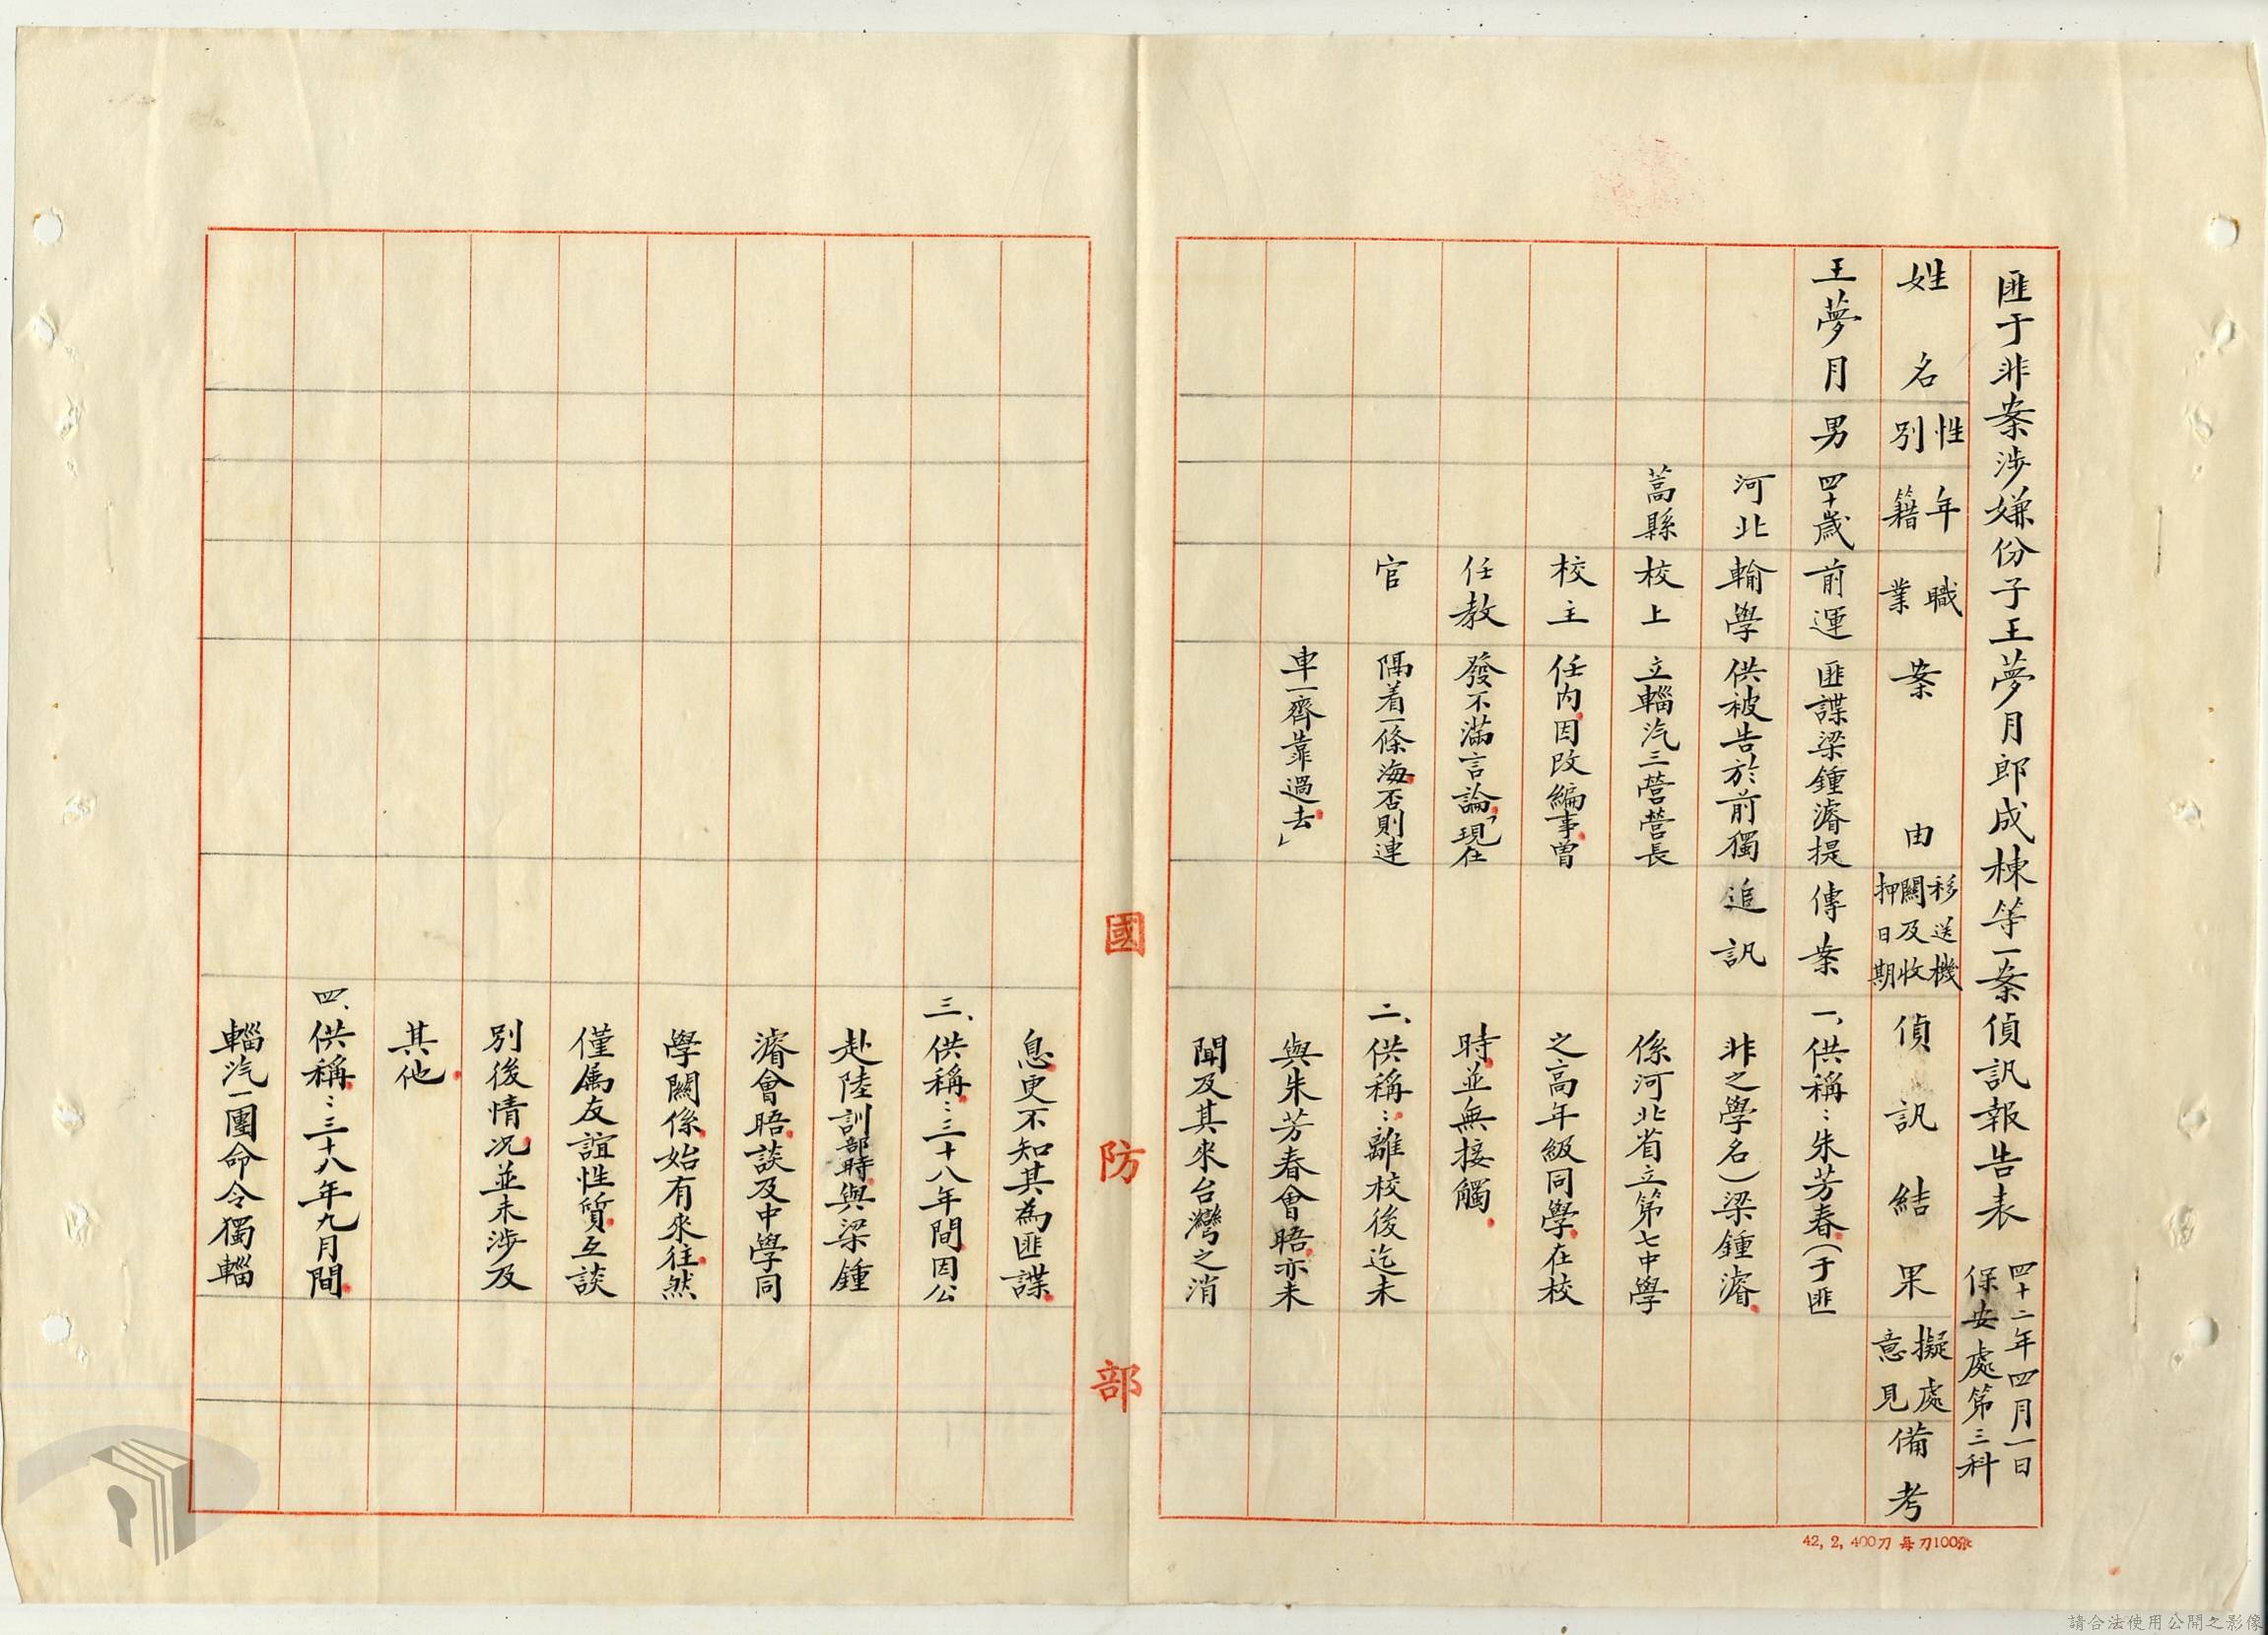 匪于非案涉嫌份子王夢月郎成棟等一案偵訊報告表
四十二年四月一日
保安處第三科
姓名
性別
年籍
職業
案由
移送機
關及收
押日期
偵訊結果
擬處
意見
備考
王夢月
男
四十歲
河北
蒿縣
前運
輸學
校上
校主
任教
官
匪諜梁鍾濬提
供被告於前獨
立輜汽三營營長
任內因改編事曾
發不滿言論「現在
隔着一條海否則連
車一齊靠過去」
傳案
追訊
一、供稱：朱芳春(于匪
非之學名)梁鍾濬
係河北省立第七中學
之高年級同學在校
時並無接觸
二、供稱：離校後迄未
與朱芳春會晤亦未
聞及其來台灣之消
息更不知其為匪諜
三、供稱：三十八年間因公
赴陸訓部時與梁鍾
濬會晤談及中學同
學關係始有來往然
僅屬友誼性質互談
別後情況並未涉及
其他
四、供稱：三十八年九月間
輜汽一團命令獨輜
國防部
42, 2, 400刀 每刀100張
請合法使用公開之影像